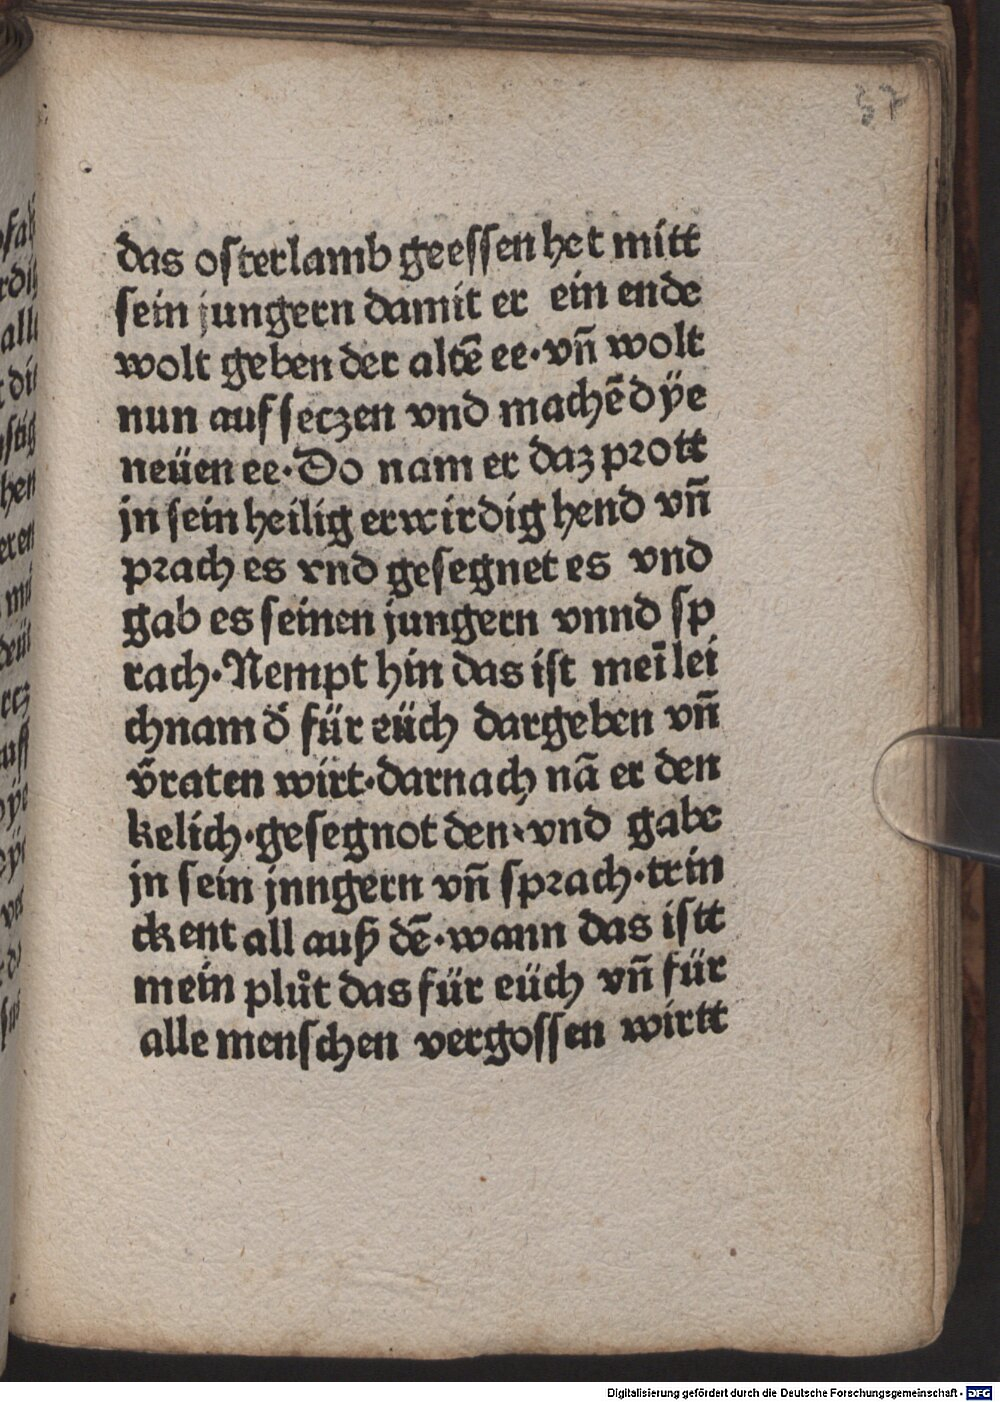 57
das osterlamb geessen het mitt
sein jungern damit er ein ende
wolt geben der altẽ ee·vñ wolt
nun auf seczen vnd machẽ dÿe
neüen ee·Do nam er daz prott
jn sein heilig erwirdig hend vñ
prach es vnd gesegnet es vnd
gab es seinen jungern vnnd sp
rach·Nempt hin das ist meĩ lei
chnam d᷑ für eüch dargeben vñ
v᷑raten wirt·darnach nã er den
kelich·gesegnot den·vnd gabe
jn sein jnngern vñ sprach·trin
ckent all auß dẽ·wann das istt
mein plůt das für eüch vñ für
alle menschen vergossen wirtt
Digitalisierung gefördert durch die Deutsche Forschungsgemeinschaft - DFG